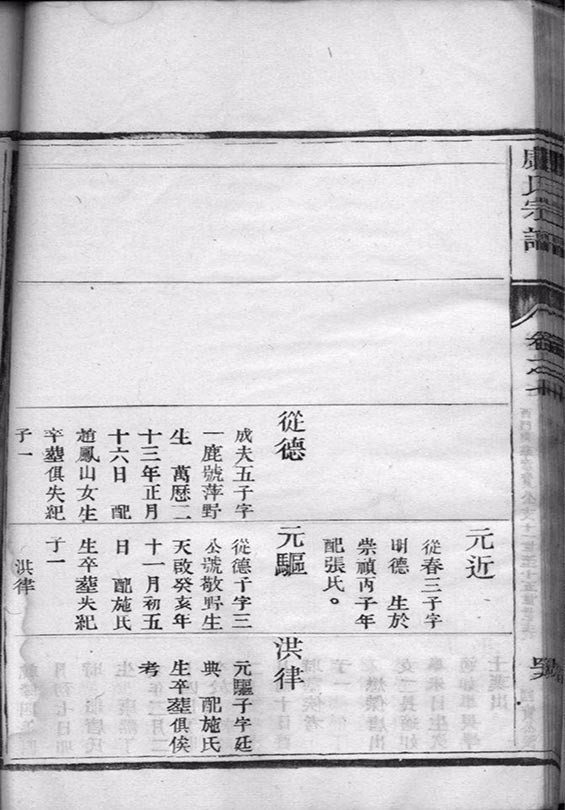 氏宗譜
卷之十
元近
從春三子字
明德　生於
崇禎丙子年
配張氏。
從德
成夫五子字
一鹿號萍野
生　萬歷二
十三年正月
十六日　配
趙鳳山女生
卒塟俱失紀
子一
元驅
從德子字三
公號敬野生
天啟癸亥年
十一月初五
日　配施氏
生卒塟失紀
子一
洪律
洪律
元驅子字廷
典　配施氏
生卒塟俱俟
考